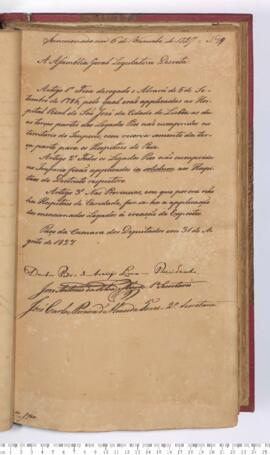 Sanccionado em 6 de Novembro de 1827 Nº 9
A Assemblea Geral Legislativa Decreta
Artigo 1º Fica derogado o Alvará de 5 de Se-
tembro de 1786, pelo qual erão applicadas ao Hos-
pital Real de São José da Cidade de Lisboa as du-
as terças partes dos Legados Pios não cumpridos no
territorio do Imperio, com reserva somente da ter-
ça parte para os Hospitaes do Paiz
Artigo 2º Todos os Legados Pios não cumpridos
no Imperio ficão applicados in solidum aos Hospi-
taes do Destricto respectivo
Artigo 3º Nas Provincias, em que por ora não
ha Hospitaes de Caridade, far-se-ha a applicação
dos mencionados Legados á creação de Expostos
Paço da Camara dos Deputados em 31 de A-
gosto de 1827
Presidente
José 1º Secretario
José Carlos Pereira de Almeida Torres 2º Secretario